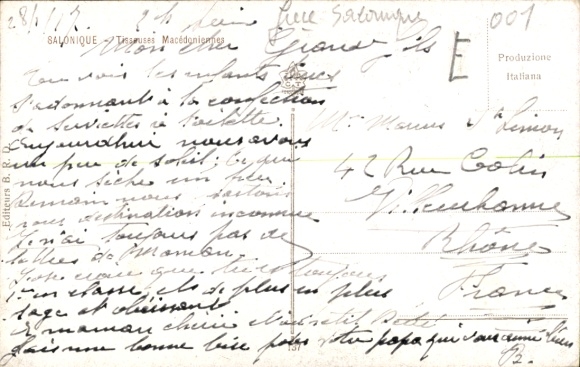 28/1/17
Grèce Salonique
001
SALONIQUE - Tisseuses Macédoniennes
Mon cher Grand fils
E
Produzione
Italiana
Tu vois les enfants
s'adonnant à la confection
de serviettes à toilette
Aujourd'hui nous avons
un peu de soleil, ce qui
nous sèche un peu
Demain nous partons
sous destination inconnue
Je n'ai toujours pas de
lettres de Maman
J'ose croire que tu es toujours
1er en classe et de plus en plus
sage et obéissant
maman chérie
fais une bonne bise pour votre papa qui vous aime bien
B.
Mr Marius St Simon
42 Rue Colin
Villeurbanne
Rhône
France
Editeurs B. R. D.
137